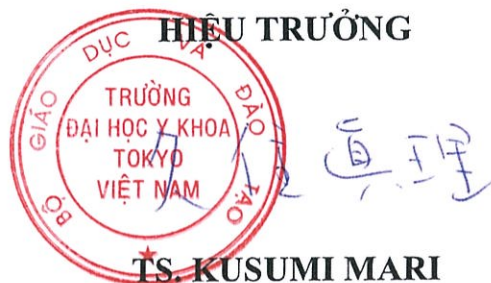 HIỆU TRƯỞNG
BỘ GIÁO DỤC VÀ ĐÀO TẠO
TRƯỜNG
ĐẠI HỌC Y KHOA
TOKYO
VIỆT NAM
真理
TS. KUSUMI MARI